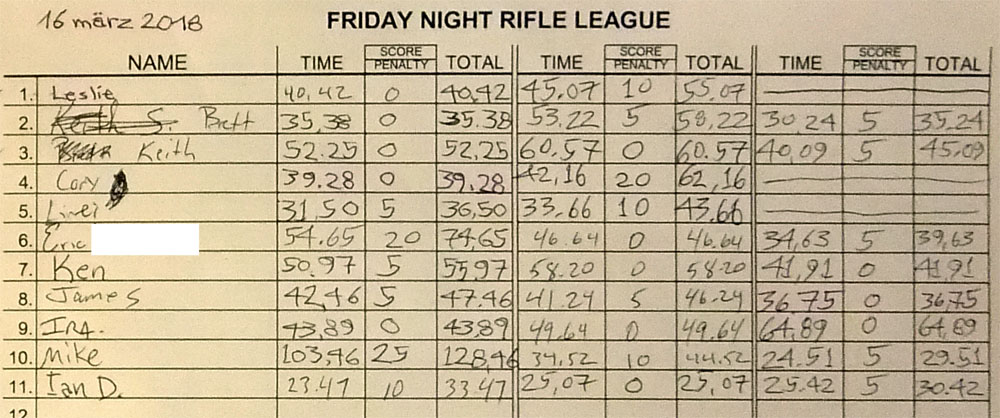 16 märz 2018 FRIDAY NIGHT RIFLE LEAGUE
NAME TIME SCORE PENALTY TOTAL TIME SCORE PENALTY TOTAL TIME SCORE PENALTY TOTAL
1. Leslie 40,42 0 40,42 45.07 10 55.07
2. Keith S. Brett 35,38 0 35.38 53,22 5 58,22 30 24 5 35,24
3. Keith 52.25 0 52,25 60.57 0 60.57 40,09 5 45.09
4. Cory 39.28 0 39.28 42,16 20 62,16
5. 31,50 5 36,50 33.66 10 43.66
6. Eric 54.65 20 74,65 46.64 0 46.64 34,63 5 39,63
7. Ken 50.97 5 55,97 58.20 0 58.20 41,91 0 41.91
8. James 42,46 5 47.46 41.24 5 46.24 36.75 0 36,75
9. IRA. 43,89 0 43,89 49.64 0 49.64 64,89 0 64,89
10. Mike 103,46 25 128,46 34,52 10 44.52 24.51 5 29.51
11. Ian D. 23.47 10 33.47 25,07 0 25,07 25.42 5 30.42
12